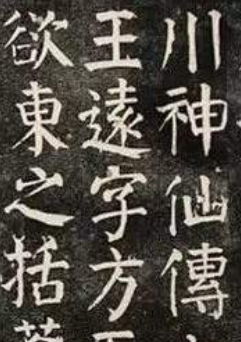 川神仙傳
王遠字方
欲東之括